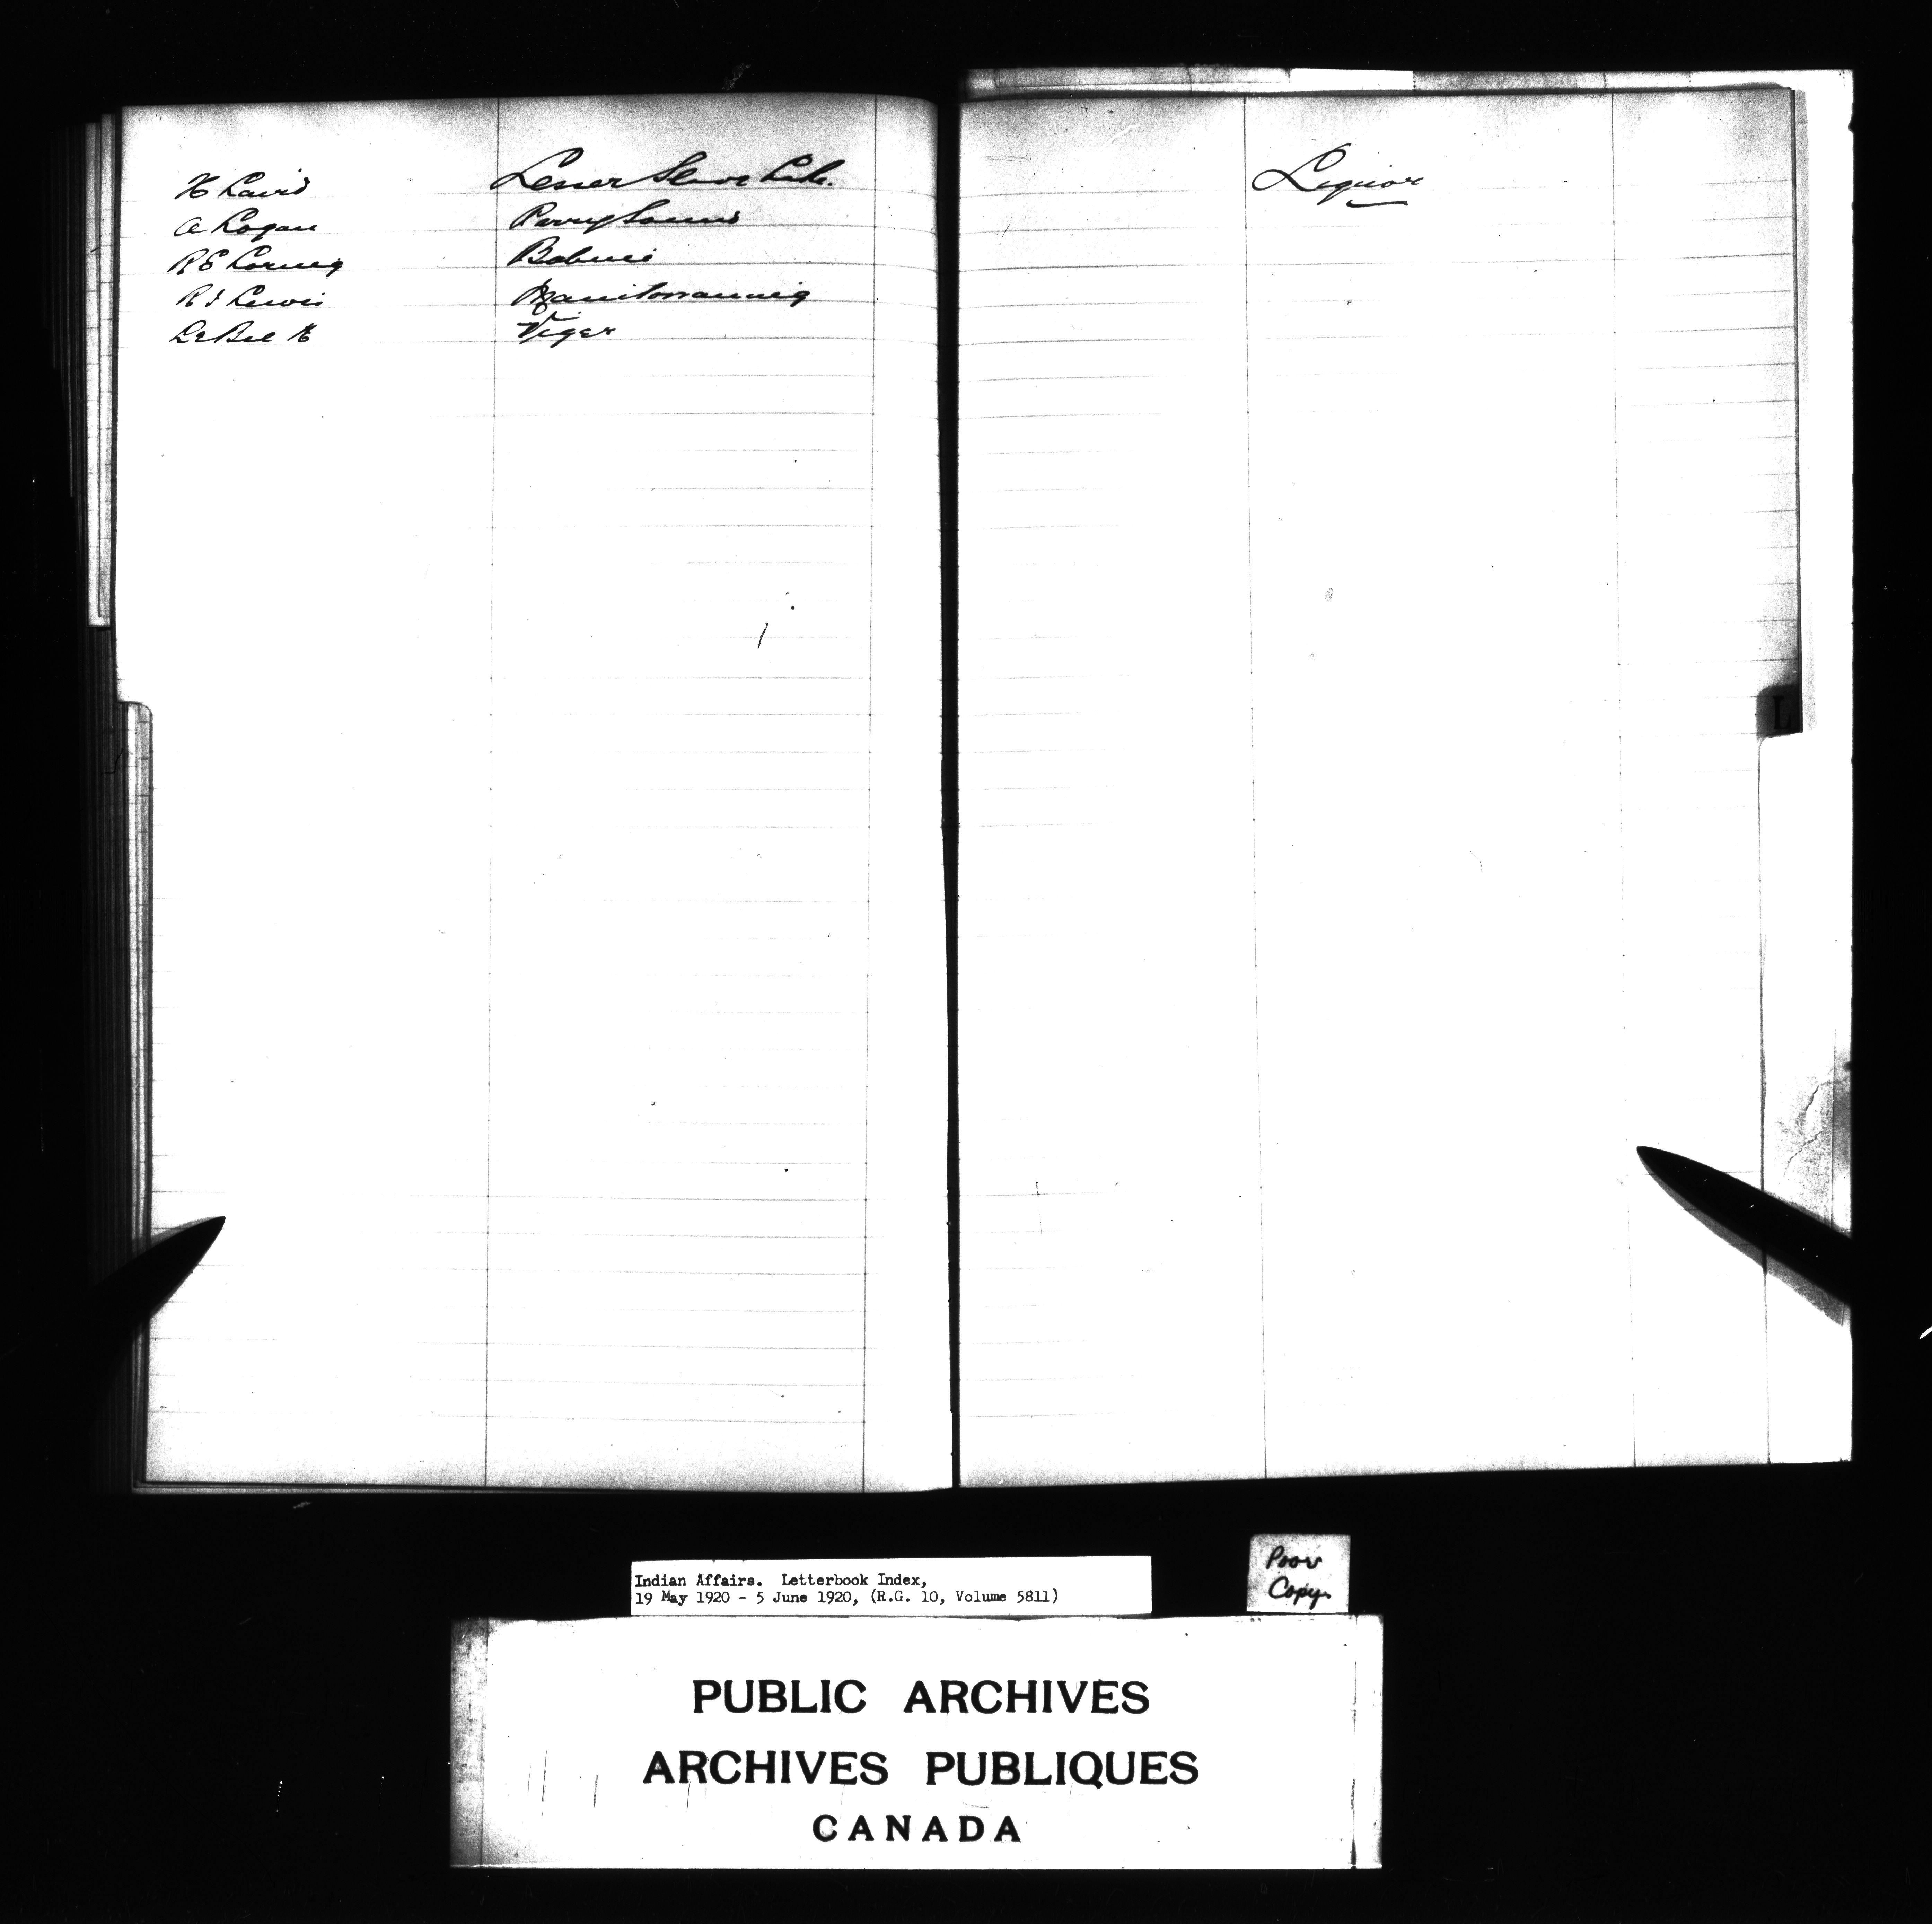 H Laird Lesser Slave Lake.
A Logan Parry Sound
R E Loring Babine
R J Lewis Manitowaning
LeBel H Viger
Liquor
L
Indian Affairs. Letterbook Index,
19 May 1920 - 5 June 1920, (R.G. 10, Volume 5811)
Poor
Copy.
PUBLIC ARCHIVES
ARCHIVES PUBLIQUES
CANADA